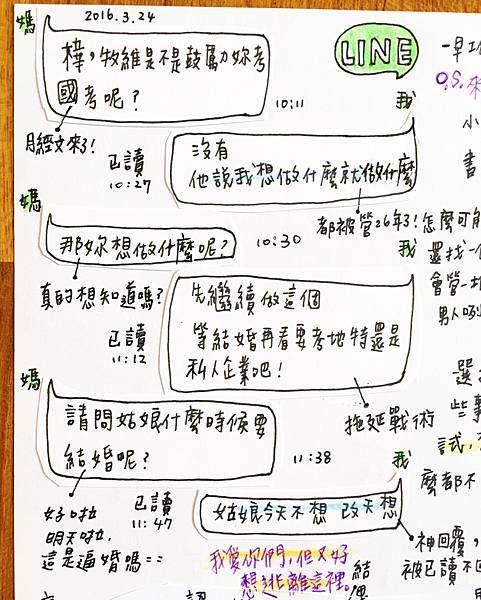 2016.3.24
LINE
媽
樺，牧維是不是鼓厲妳考
國考呢？
10:11
月經文來了！
我
沒有
他說我想做什麼就做什麼
已讀
10:27
都被管26年了！怎麼可能
媽
那妳想做什麼呢？
10:30
真的想知道嗎？
我
先繼續做這個
等結婚再看要考地特還是
私人企業吧！
已讀
11:12
拖延戰術
媽
請問姑娘什麼時候要
結婚呢？
11:38
好啦
明天啦.
這是逼婚嗎==
我
姑娘今天不想 改天想
已讀
11:47
神回覆，
被已讀不回
我愛你們，但又好
想逃離這裡。
一早工
O.S. 來
小
書
還找一個
會管一
男人
選
些事
試，
麼都不
結